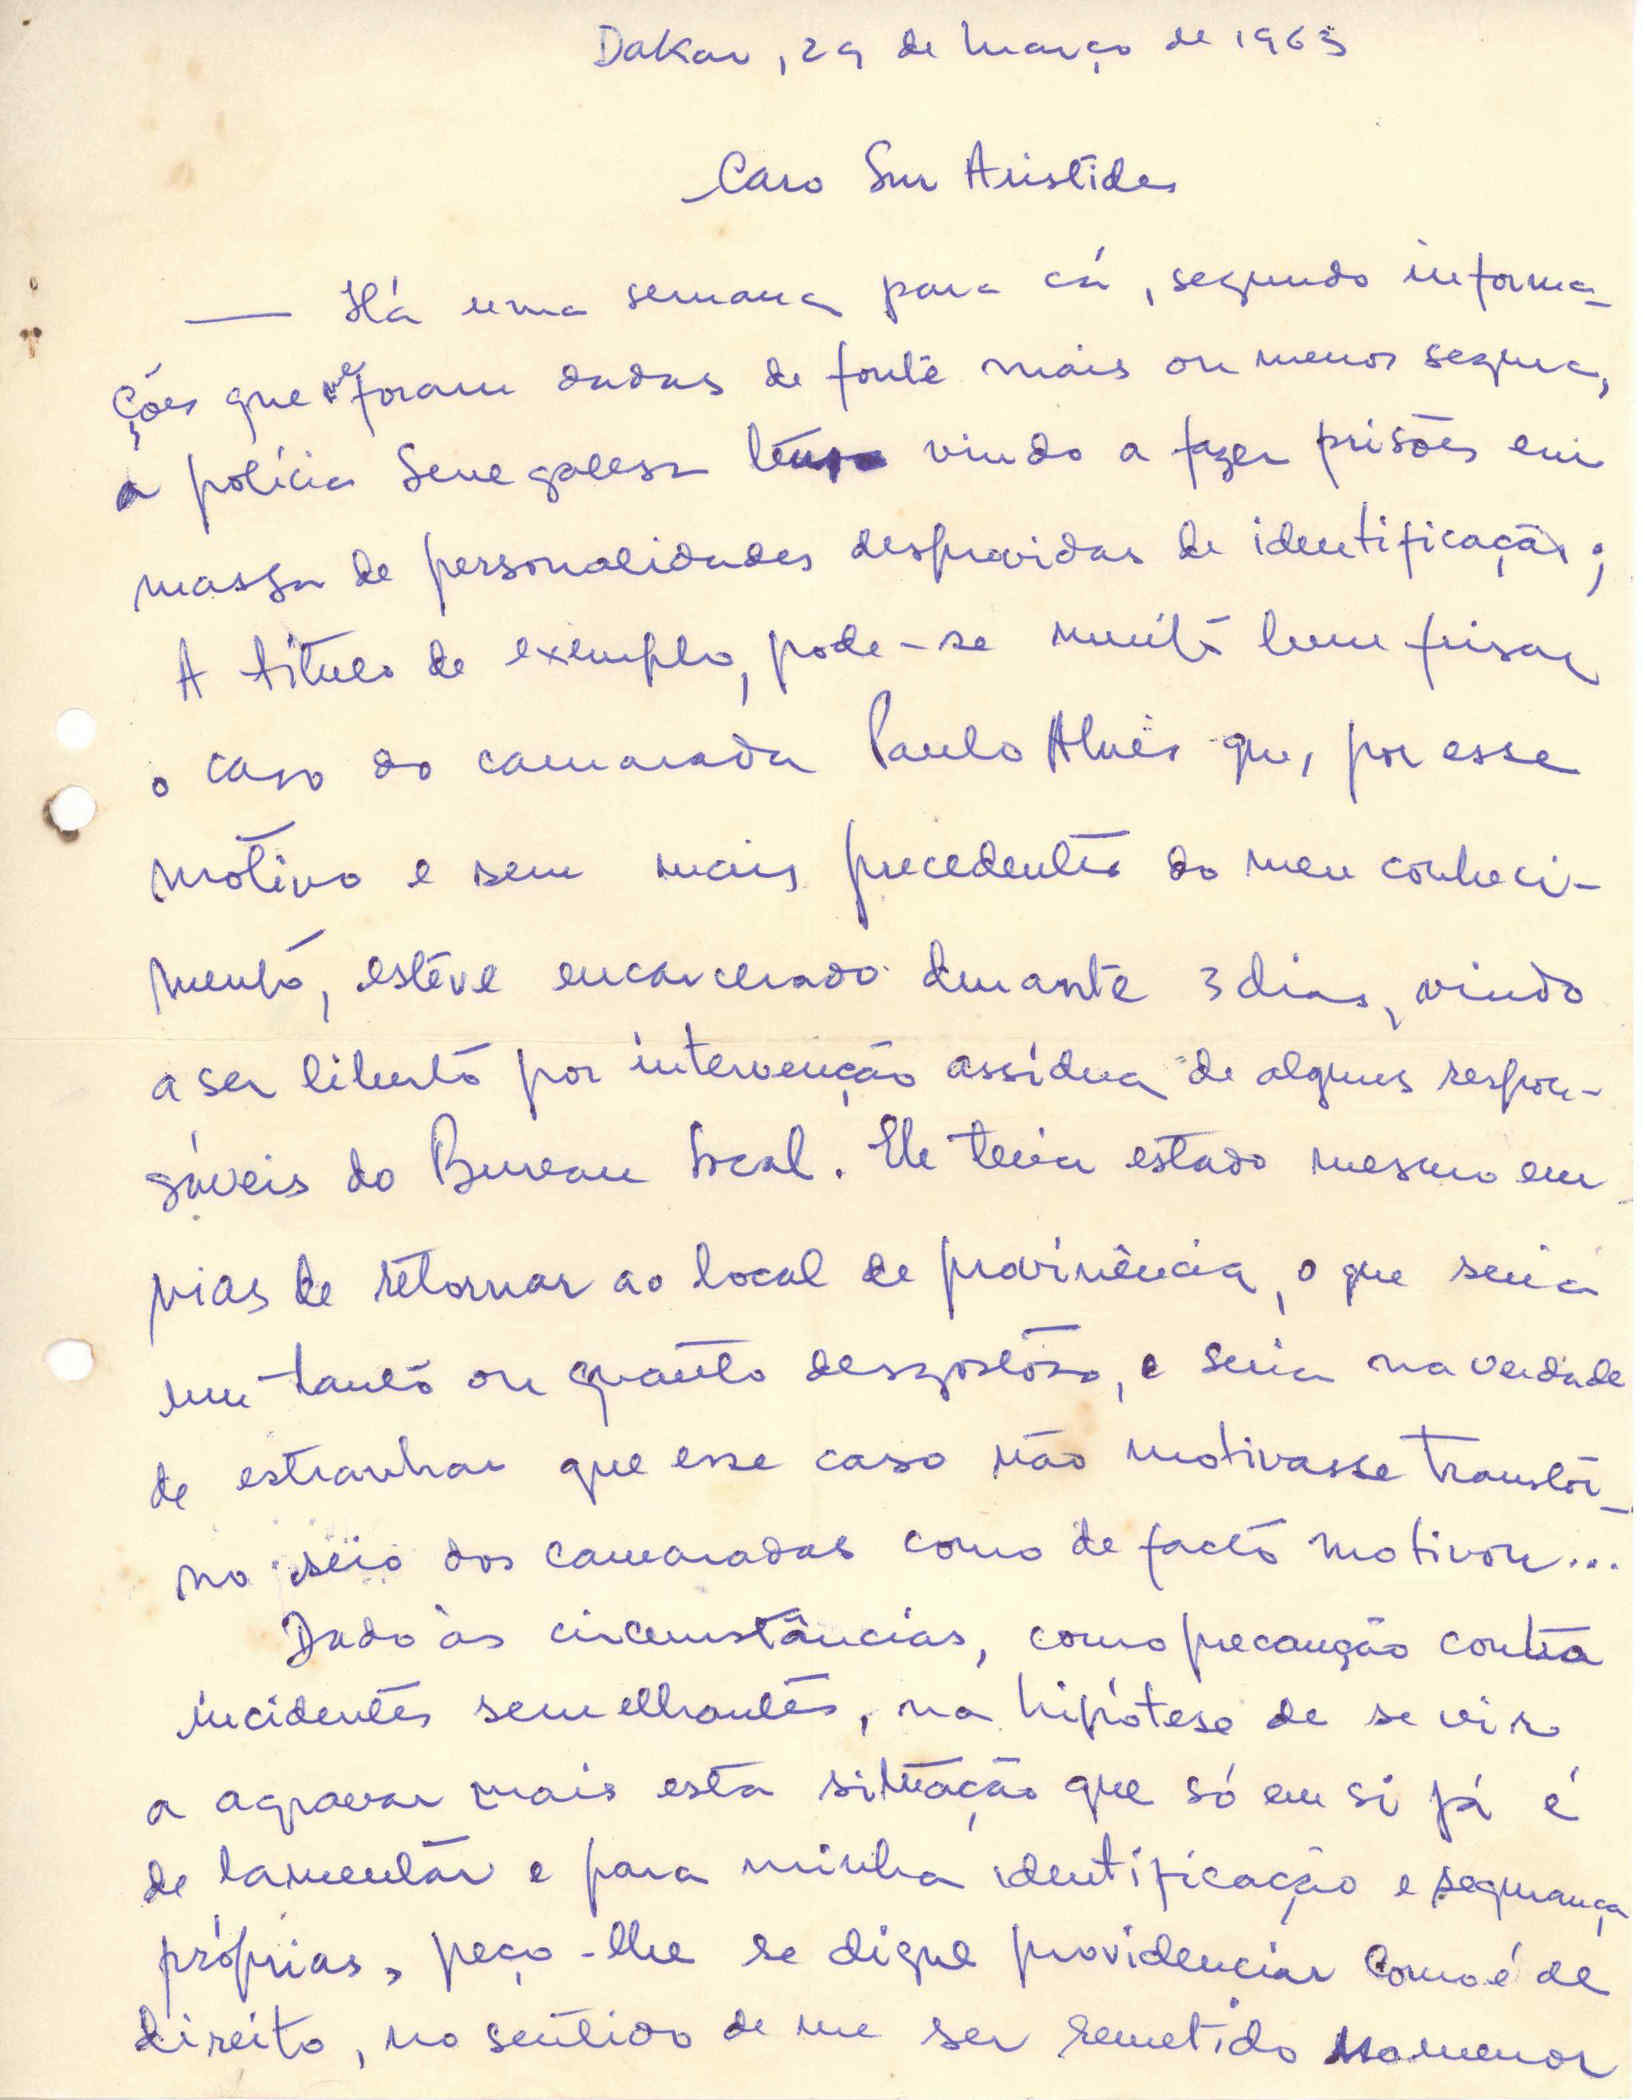 Dakar, 29 de Março de 1963
Caro Snr Aristides
— Há uma semana para cá, segundo informa-
ções que me foram dadas de fonte mais ou menos segura,
a polícia Senegalesa vindo a fazer prisões em
massa de personalidades desprovidas de identificação;
A título de exemplo, pode-se muito bem frisar
o caso do camarada Paulo Alves que, por esse
motivo e sem mais precedentes do meu conheci-
mento, estêve encarcerado durante 3 dias, vindo
a ser liberto por intervenção assídua de alguns respon-
sáveis do Bureau local. Ele teria estado mesmo em
vias de retornar ao local de provinência, o que seria
um tanto ou quanto desgostoso, e seria na verdade
de estranhar que esse caso não motivasse transtôr-
no seio dos camaradas como de facto motivou...
Dado às circunstâncias, como precaução contra
incidentes semelhantes, na hipótese de se vir
a agravar mais esta situação que só em si já é
de lamentar e para minha identificação e segurança
próprias, peço-lhe se digne providenciar como é de
direito, no sentido de me ser remetido no menor